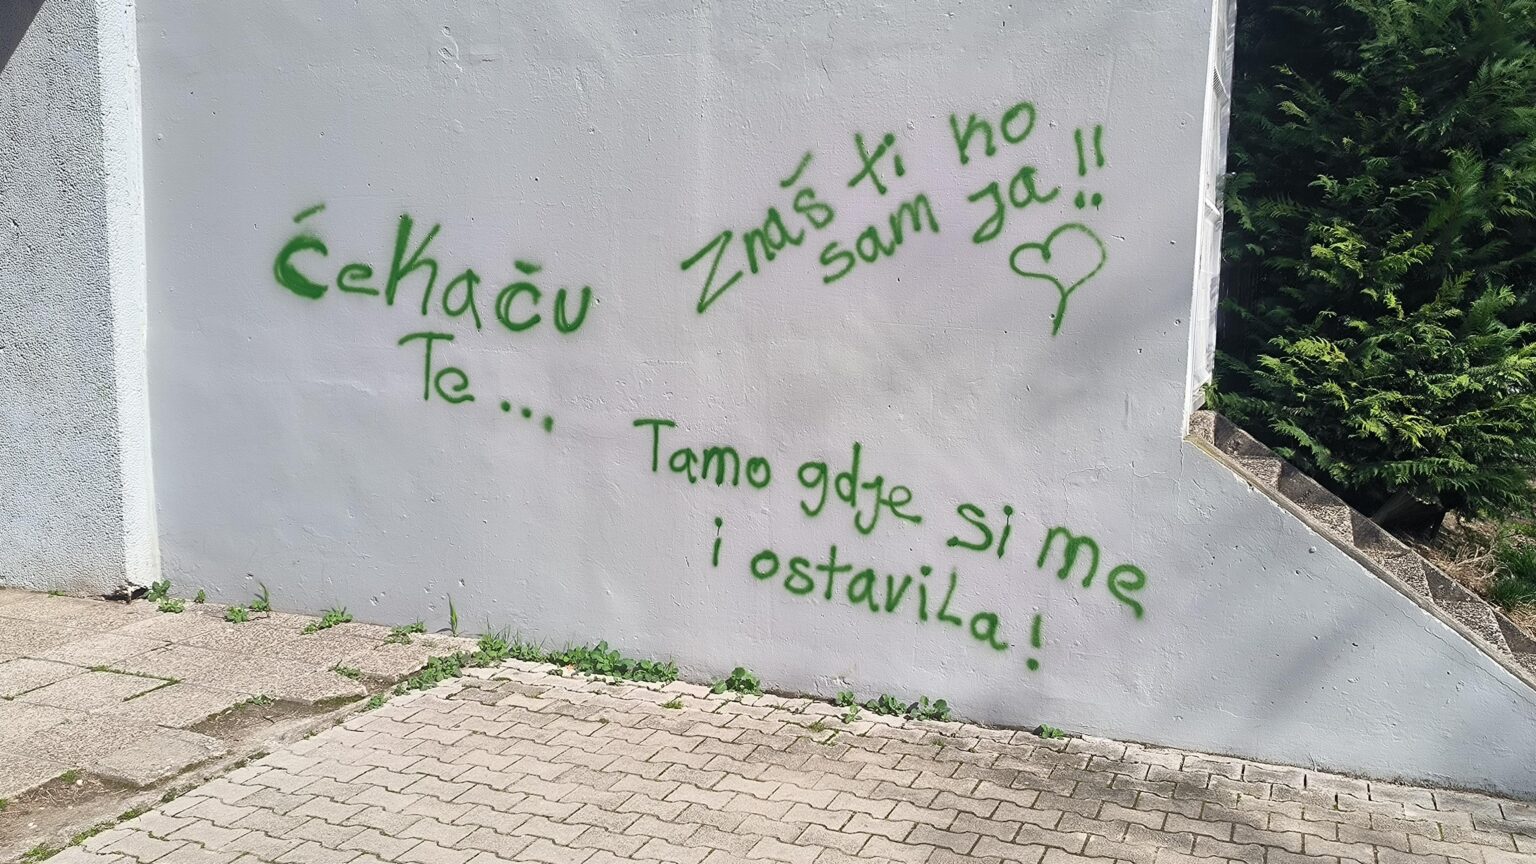 ćekaču
Te...
Znaš ti ko
sam ja!!
Tamo gdje si me
i ostavila!